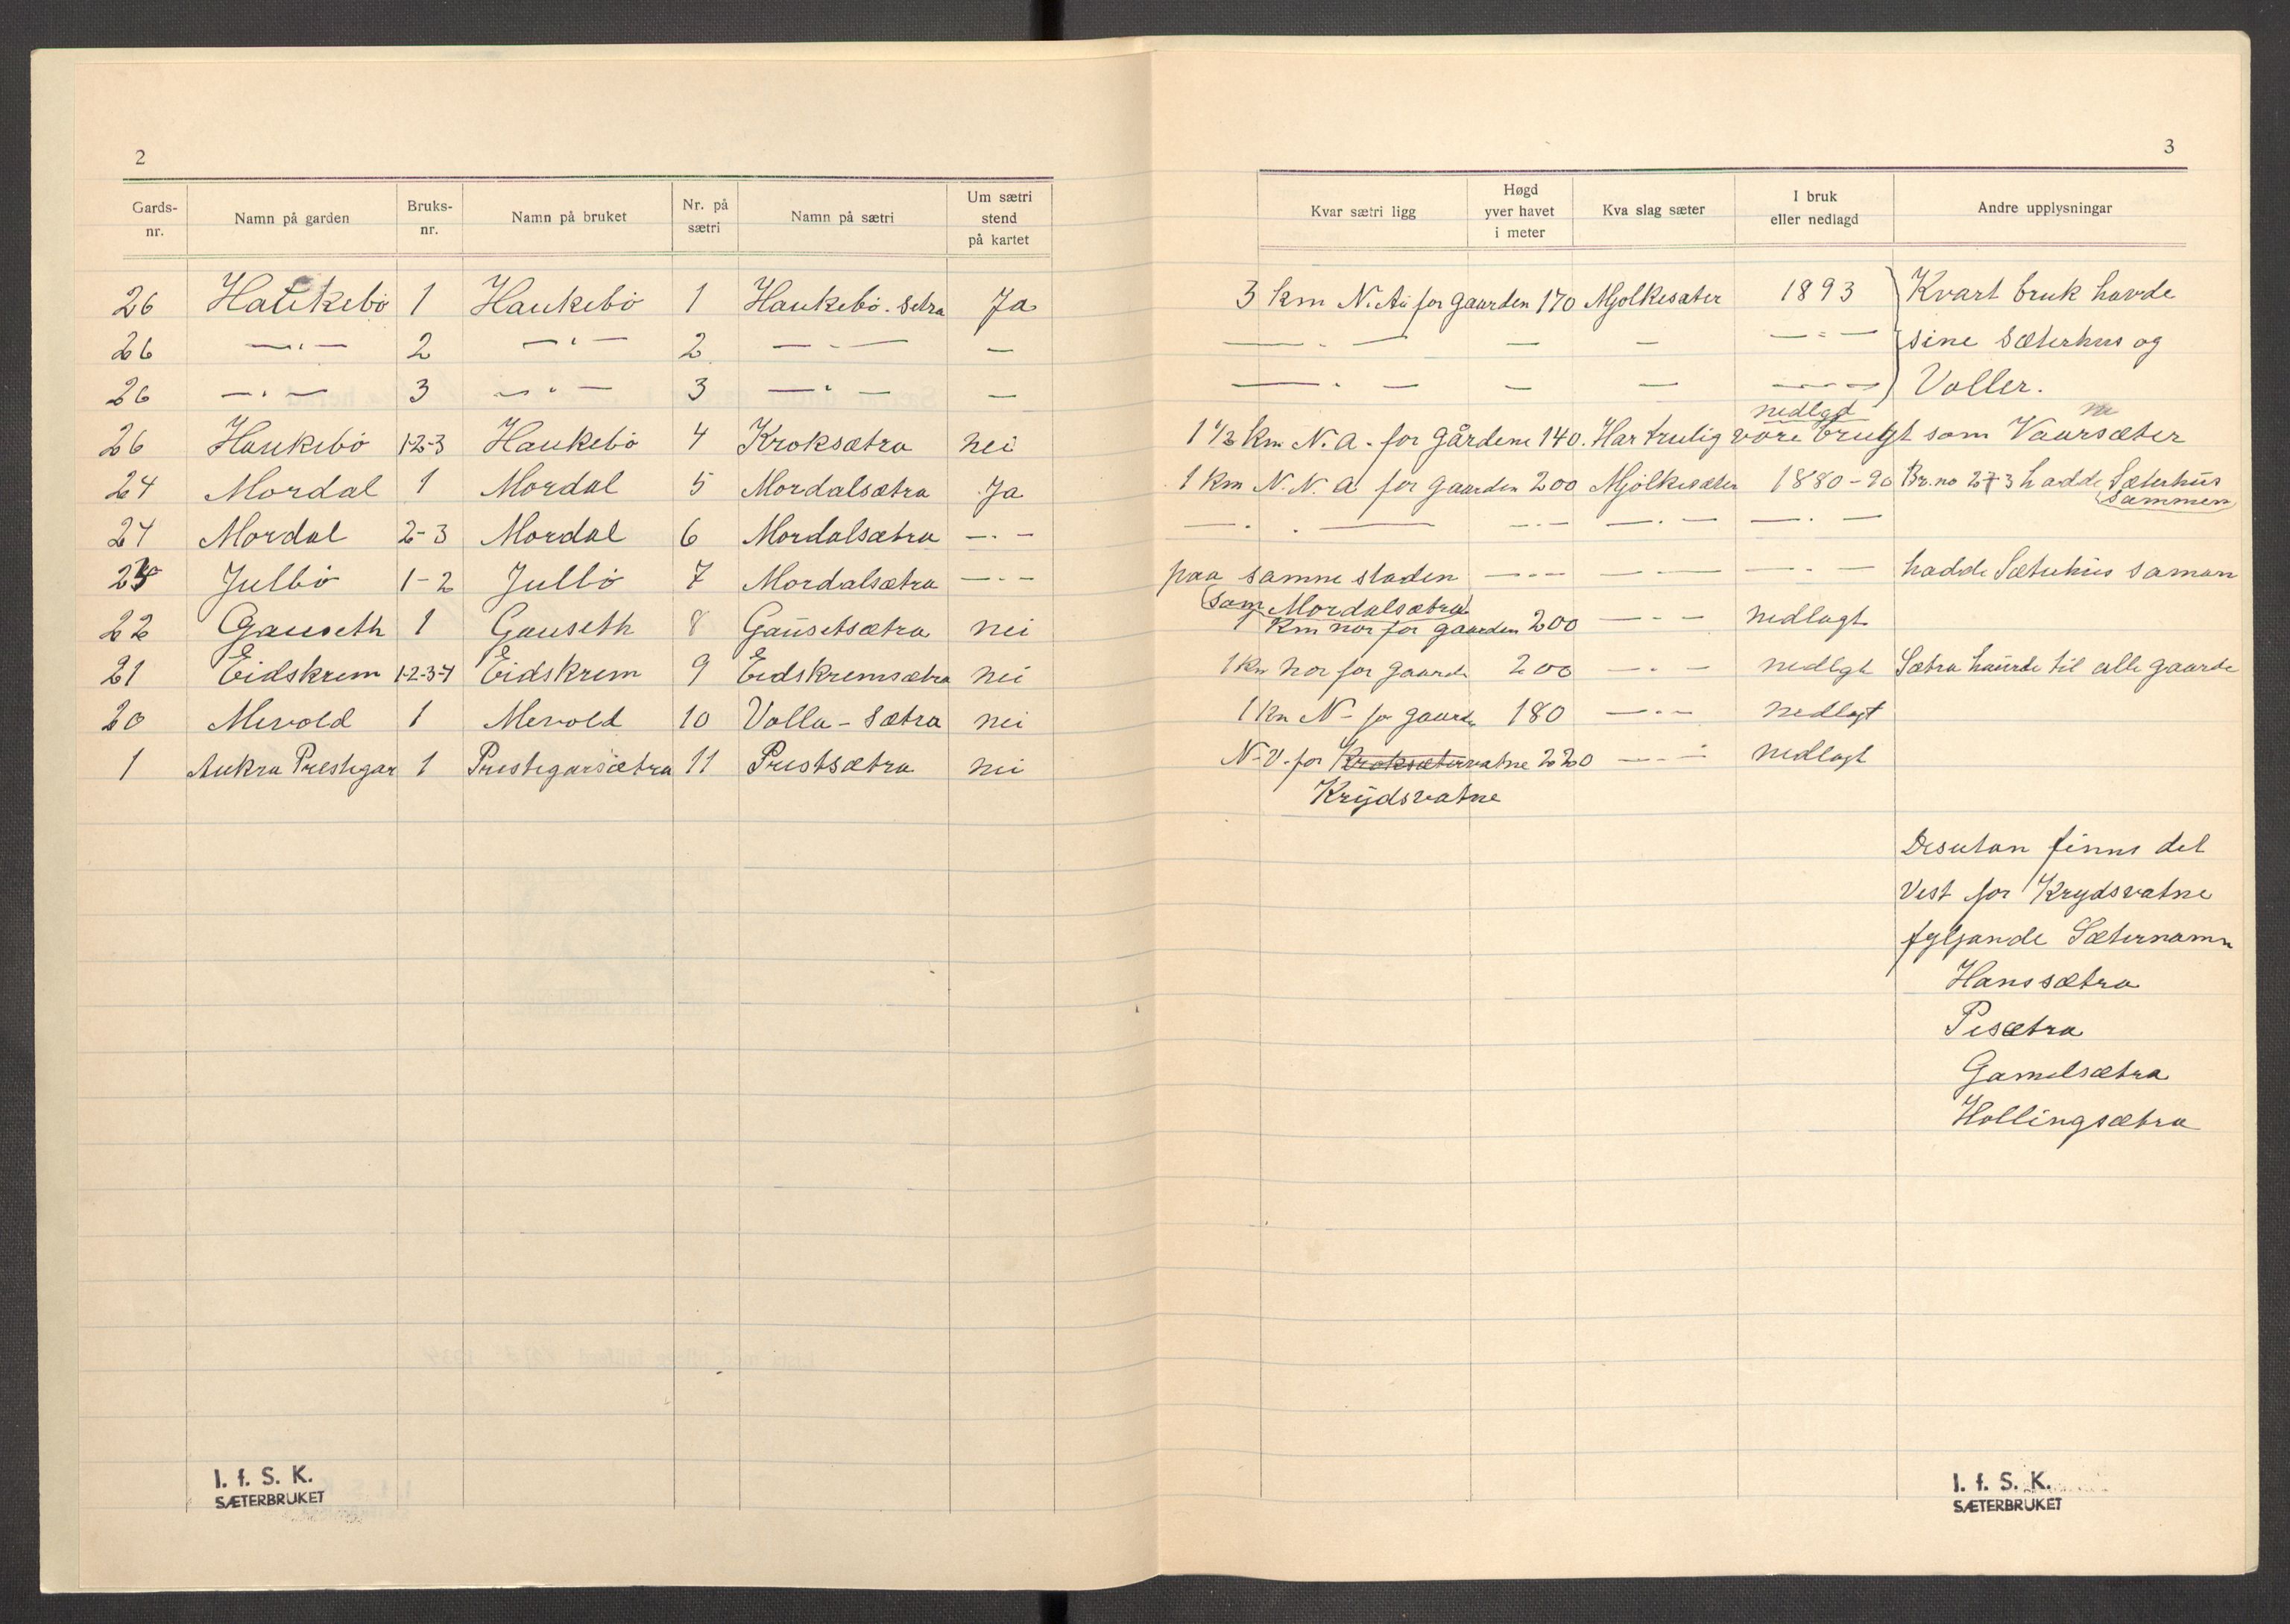 2
Gards-nr. Namn på garden Bruks-nr. Namn på bruket Nr. på sætri Namn på sætri Um sætri stend på kartet
26 Haukebö 1 Haukebö 1 Haukebö-Setra Ja
26 —"— 2 —"— 2 — - — —
26 —"— 3 —"— 3 —"— —
26 Haukebö 1-2-3 Haukebö 4 Kroksætra nei
24 Mordal 1 Mordal 5 Mordalsætra Ja
24 Mordal 2-3 Mordal 6 Mordalsætra —.—
Julbö 1-2 Julbö 7 Mordalsætra —.—
22 Gauseth 1 Gauseth 8 Gausetsætra nei
21 Eidskrem 1-2-3-4 Eidskrem 9 Eidskremsætra nei
20 Mevold 1 Mevold 10 Volla-Sætra nei
1 Aukra Prestegar 1 Prestegarsætra 11 Prestsætra nei
I. f. S. K.
SÆTERBRUKET
3
Kvar sætri ligg Høgd yver havet i meter Kva slag sæter I bruk eller nedlagd Andre upplysningar
3 km N. Au for gaarden 170 Mjølkesæter 1893 Kvart bruk havde
— . — — — — " — sine Sæterhus og
— . — — — — - — Voller.
nedlgd
1 1/2 km N. A. for gårdene 140. Har trulig vore brugt som Vaarsæter
1 km N. N. A for gaarden 200 Mjölkesæter 1880-90 Br. no 2+3 hadde Sæterhüs
sammen
— . . — — . — — . — — . —
paa samme staden — . — — . — — . — hadde Sæterhüs saman
som Mordalsætra
1 km nor for gaarden 200 — . — nedlagt
1 km nor for gaarde 200 — . — nedlgt Sætra haürde til alle gaarde
1 km N- for gaarde 180 — . — nedlagt
N-V-for Kroksætervatne 220 — . — nedlagt
Krydsvatne
Desutan finns det
Vest for Krydsvatne
fylgjande Sæternamn
Hanssætra
Pesætra
Gamelsætra
Hollingsætra
I. f. S. K.
SÆTERBRUKET